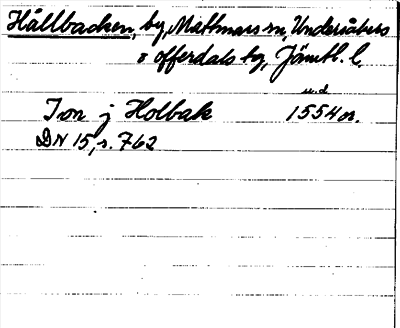 Hållbacken, by, Mattmars sn, Undersåkers
o Offerdals tg, Jämtl. l.
u.d
Jon j Holbak 1554 or.
DN 15, s. 762